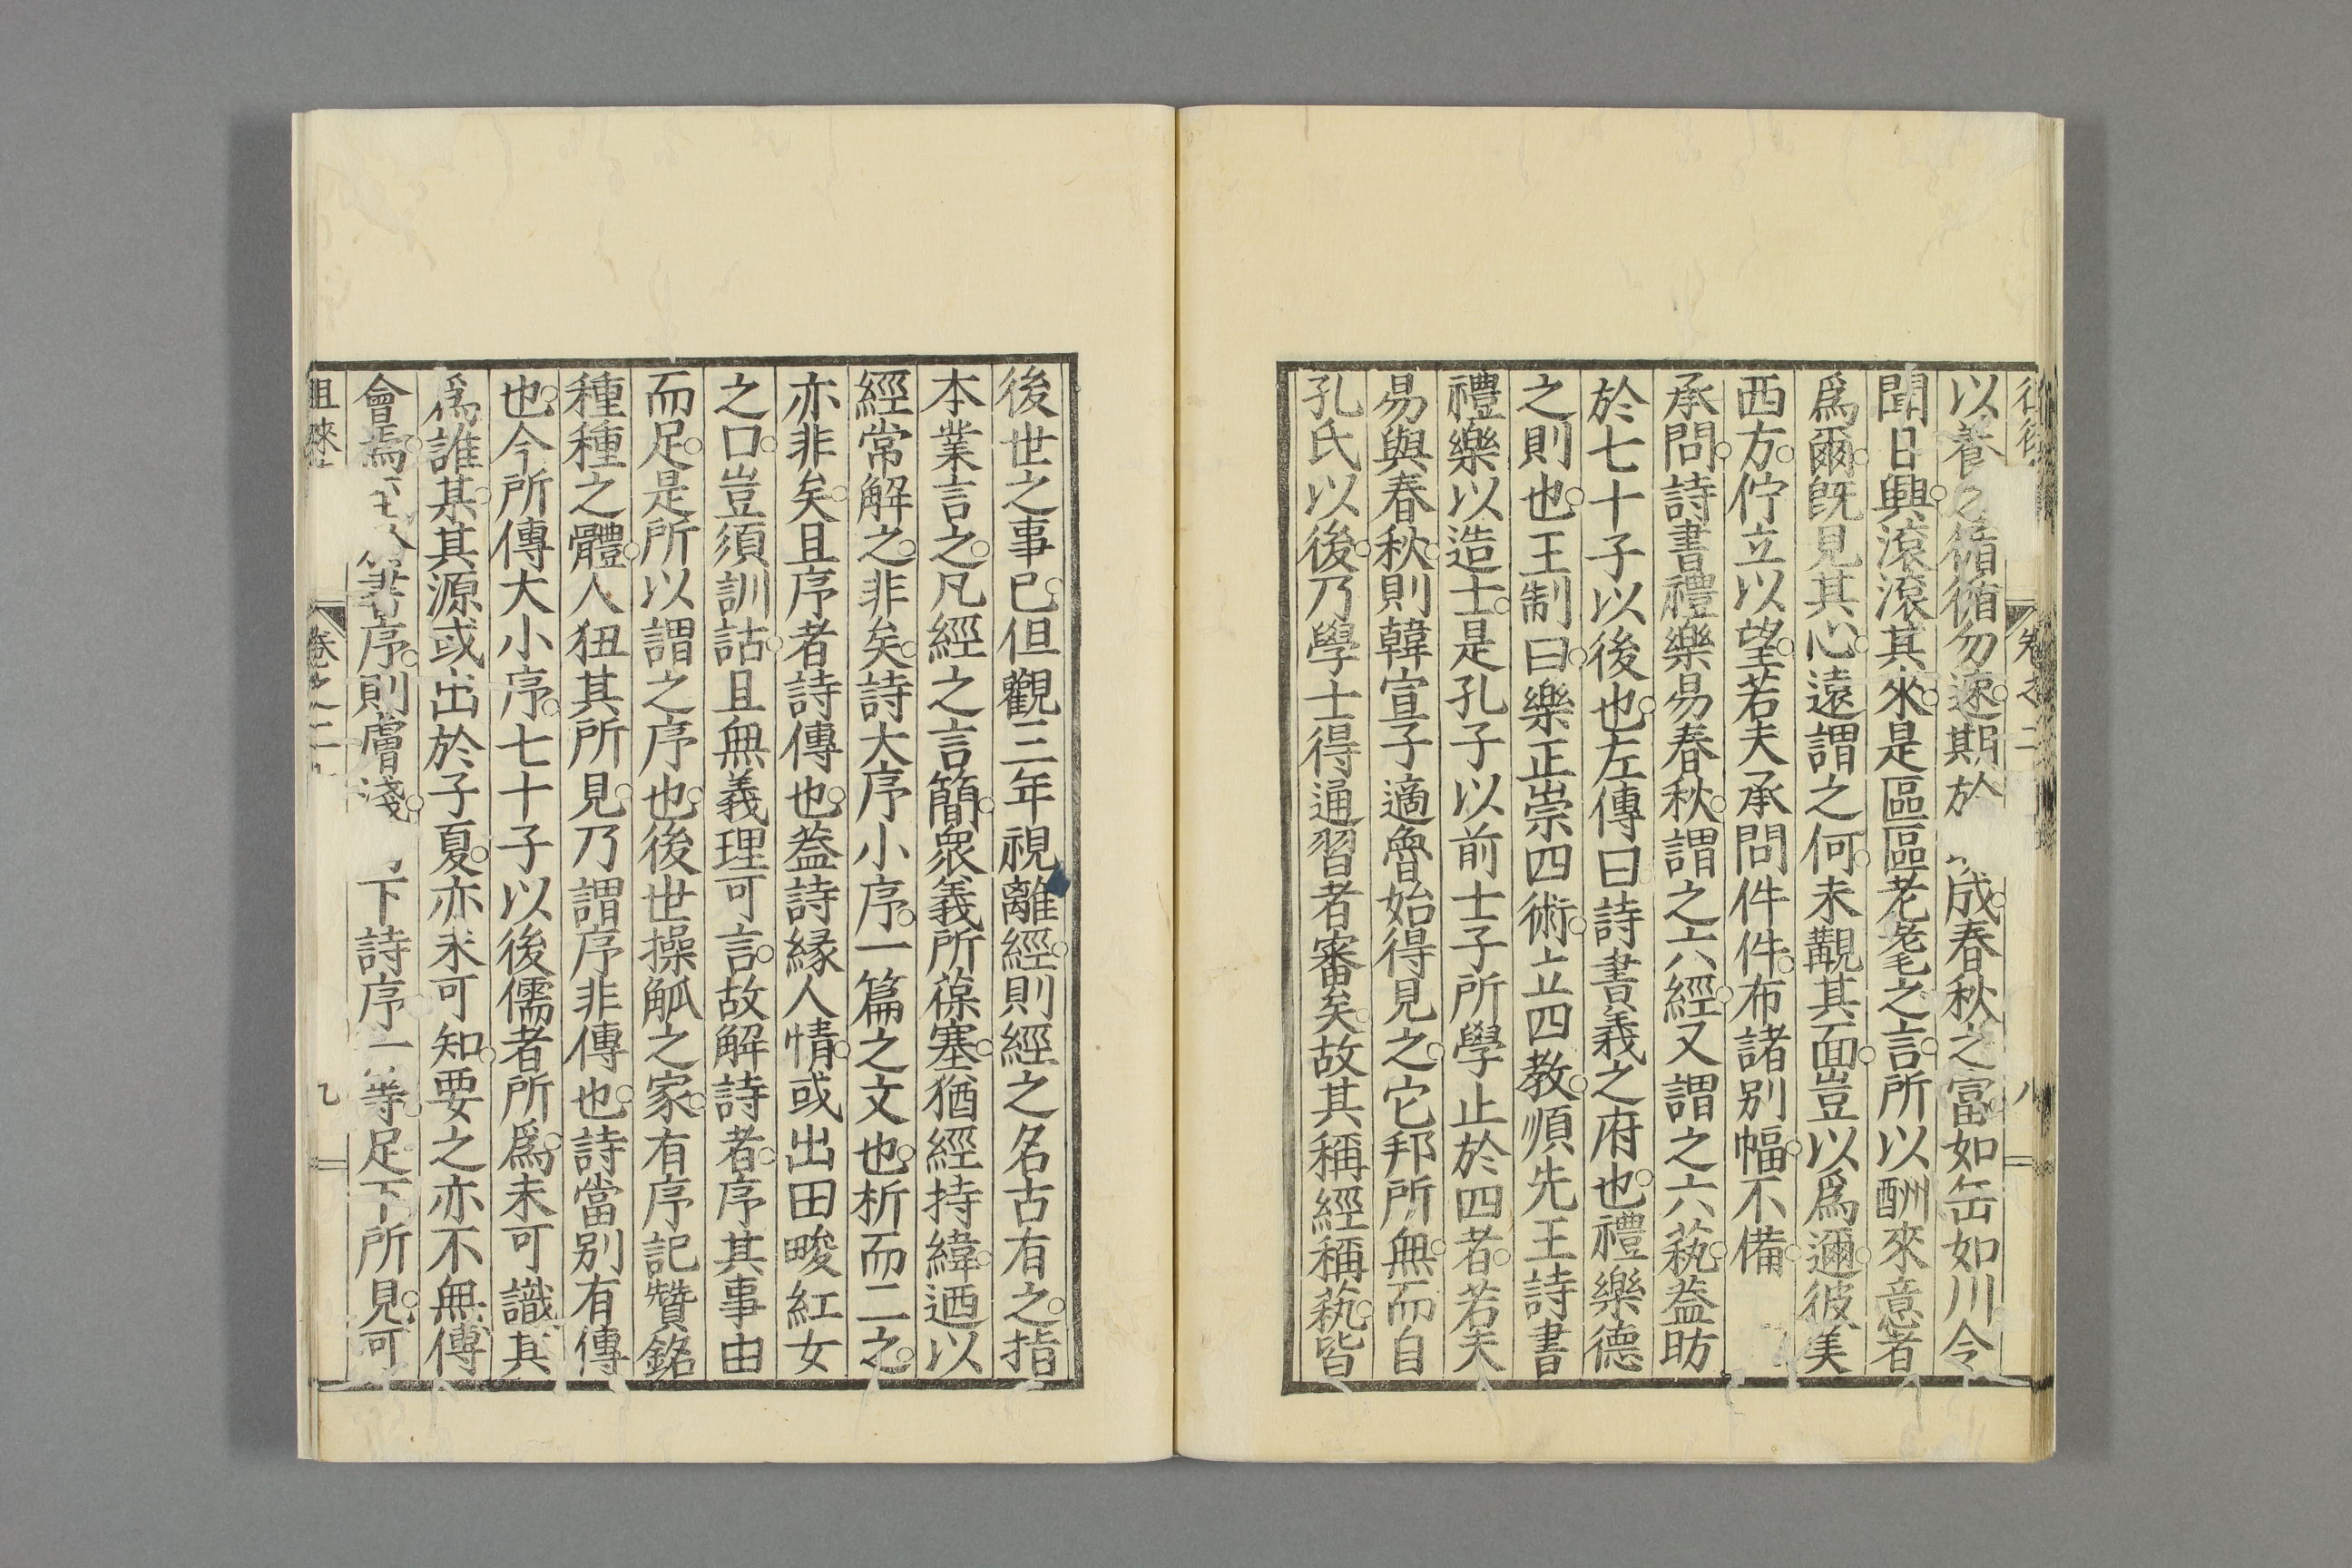 卷之二
八
以養之循循勿逐期於成春秋之富如缶如川令
聞日興滾滾其來是區區老耄之言所以酬來意者
爲爾旣見其心遠謂之何未覿其面豈以爲邇彼美
西方佇立以望若夫承問件件布諸别幅不備
承問詩書禮樂易春秋謂之六經又謂之六蓺葢昉
於七十子以後也左傳曰詩書義之府也禮樂德
之則也王制曰樂正崇四術立四教順先王詩書
禮樂以造士是孔子以前士子所學止於四者若夫
易與春秋則韓宣子適魯始得見之它邦所無而自
孔氏以後乃學士得通習者審矣故其稱經稱蓺皆
後世之事已但觀三年視離經則經之名古有之指
本業言之凡經之言簡衆義所葆塞猶經持緯迺以
經常解之非矣詩大序小序一篇之文也析而二之
亦非矣且序者詩傳也葢詩緣人情或出田畯紅女
之口豈須訓詁且無義理可言故解詩者序其事由
而足是所以謂之序也後世操觚之家有序記贊銘
種種之體人狃其所見乃謂序非傳也詩當别有傳
也今所傳大小序七十子以後儒者所爲未可識其
爲誰某其源或出於子夏亦未可知要之亦不無傳
會焉序則膚淺下詩序一等足下所見可
徂徠
卷之二
九